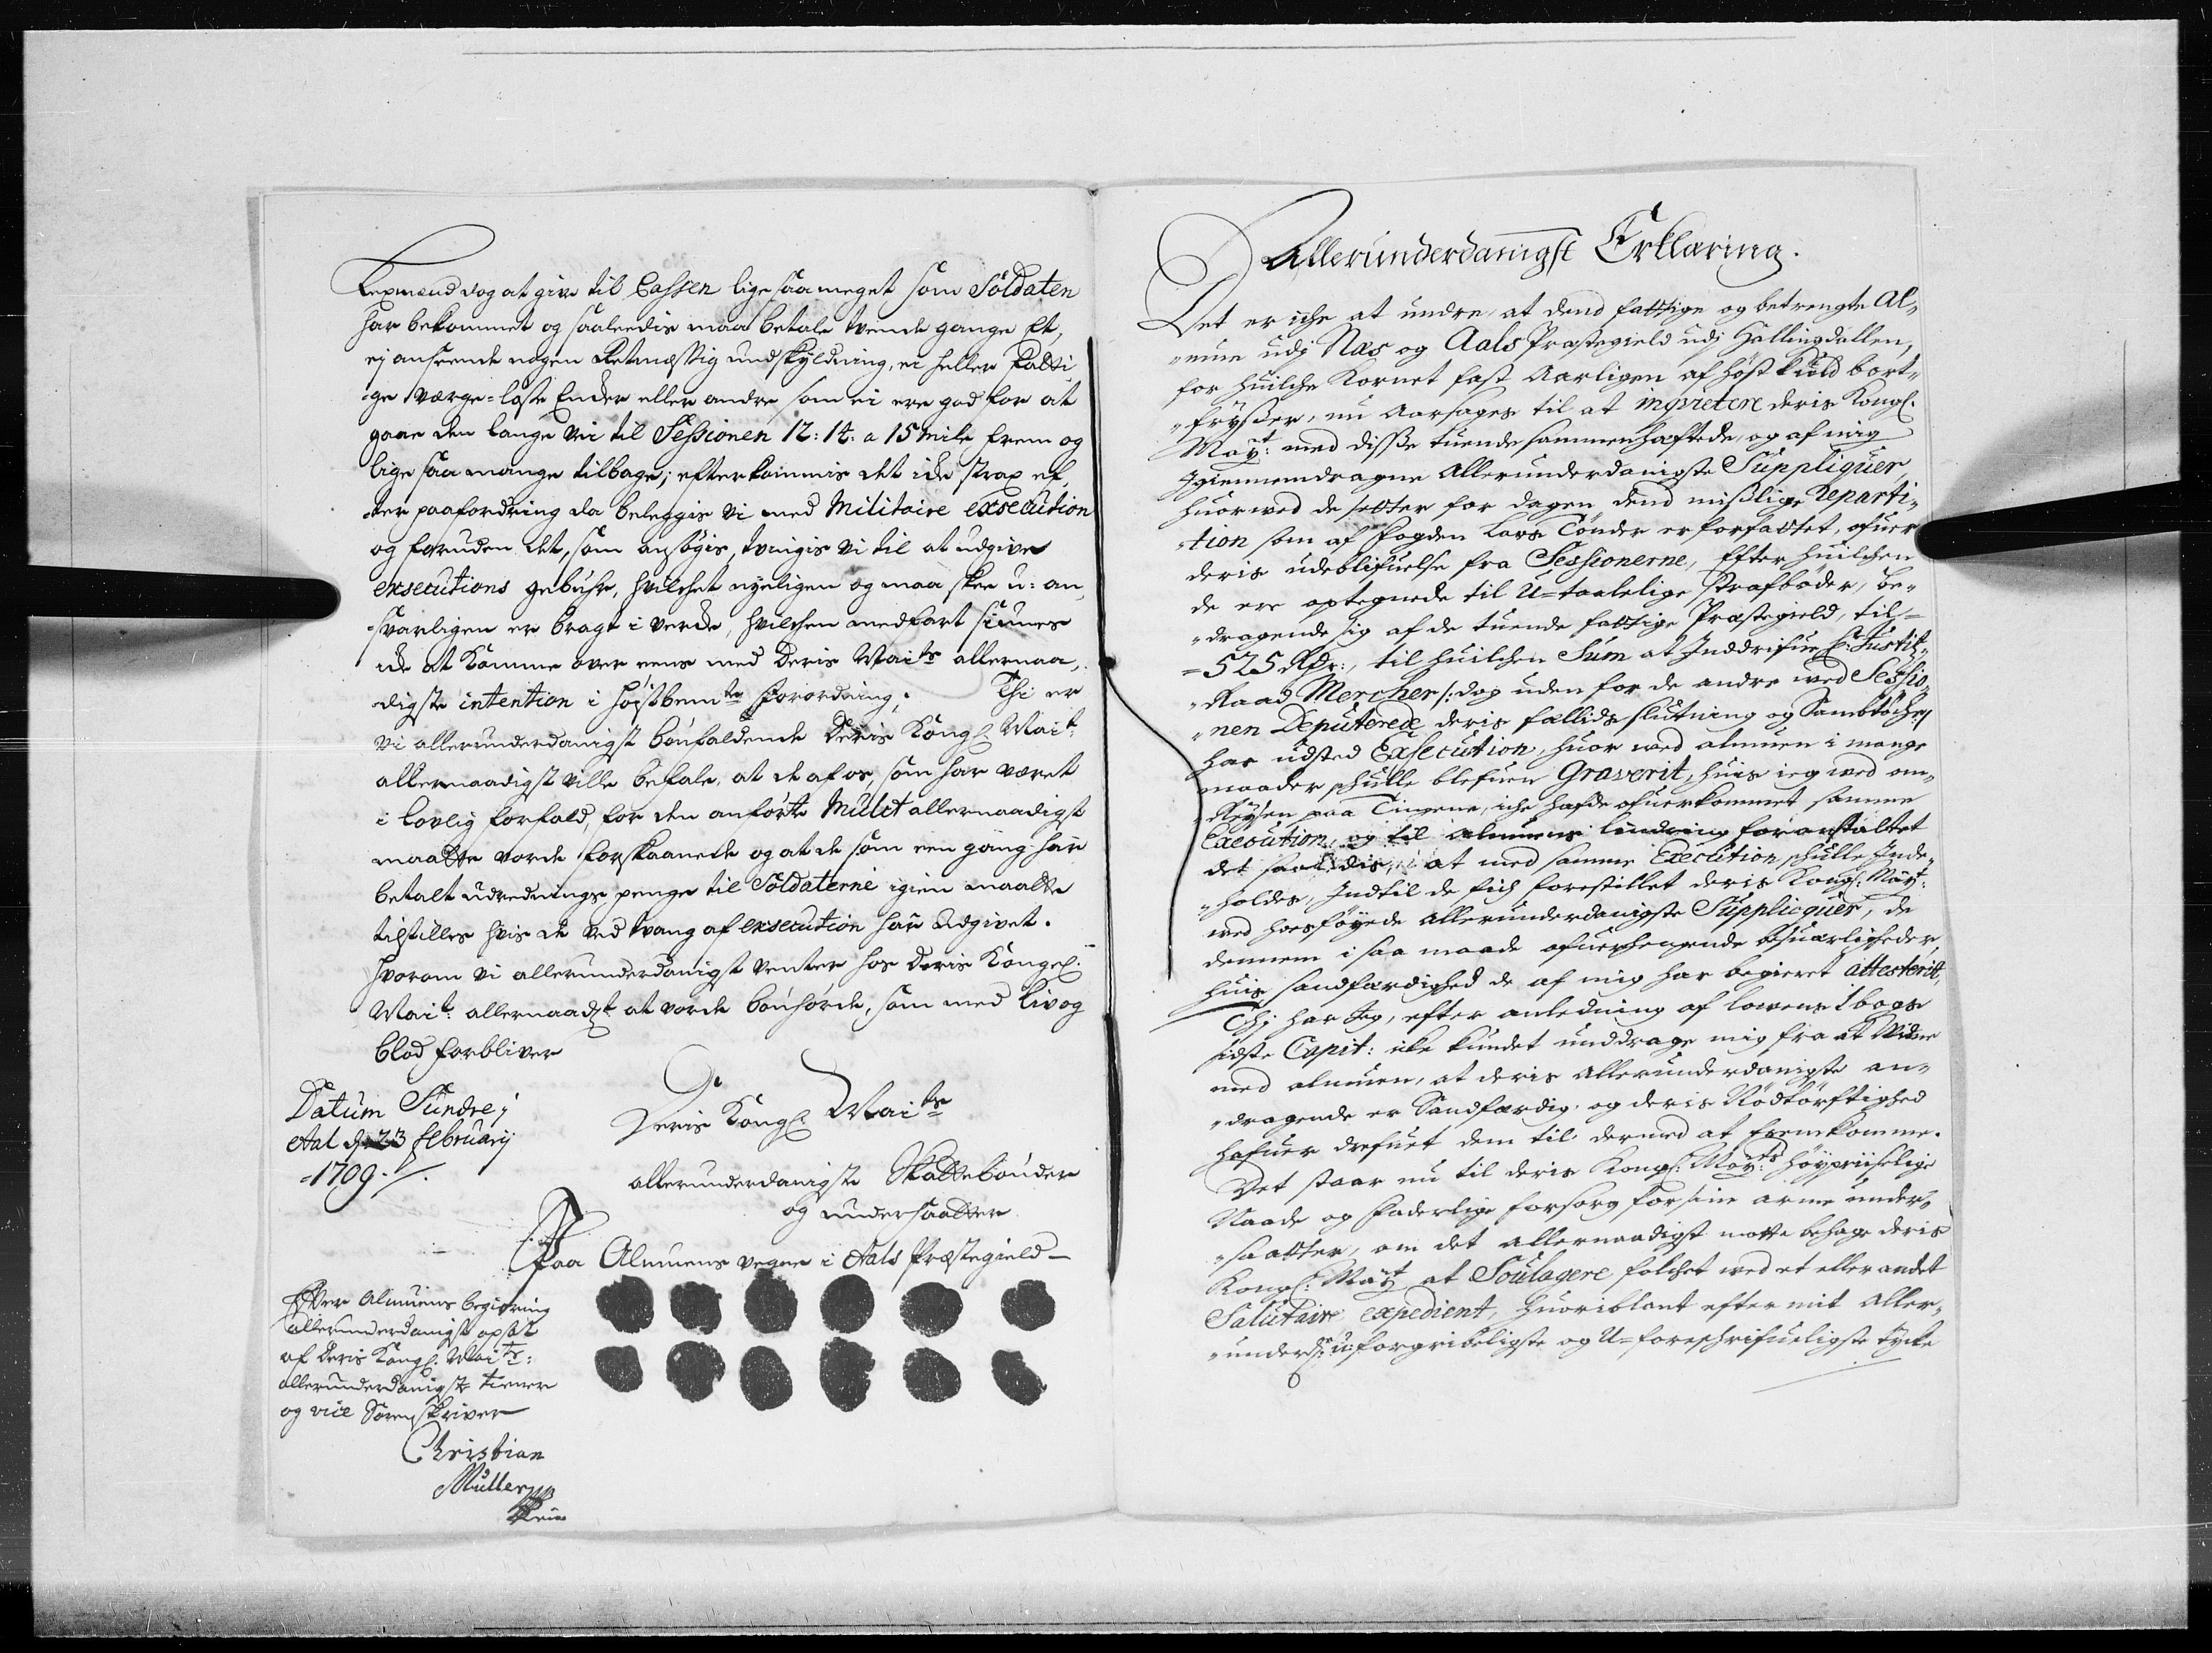 Lexmænd dog at give til Cassen lige saa meget som Soldaten
har bekommet og saaleedis maa betale tvende gange Et,
ej anseende nogen Retmæssig undskyldning, ei heller Fatti
-ge værge-løse Enker eller andre som ei ere god for at
gaae den lange vei til Sessionen 12: 14: a 15 Mile frem og
lige saa mange tilbage; efterkommis det icke strax ef,
-ter paafordring da beleggis vi med Militaire exsecution
og foruden det, som ansøgis, tvingis vi til at udgive
exsecutions gebuhr, hvilchet nyeligen og maa skee u: an,
-svarligen er bragt i verck, hvilchen medfart siunes
icke at komme over eens med Deris Maits allernaa,
digste intention i høistbemte Forordning. Thi er
vi allerunderdanigst bonfaldende Deris Kongl Mait
allernaadigst ville befale, at de af os, som har været
i lovlig forfald, for den anførte Mulct allernaadigst
maatte vorde forskaanede og at de som een gang har
betalt udrednings penge til Soldaterne igien maatte
tilstilles hvis de ved tvang af exsecution har udgivet.
hvorom vi allerunderdanigst venter hos Deris Kongel:
Mait: allernaadgt at vorde bønhørde, som med Liv og
blod forbliver
Datum Sundre i
Aal d 23 Februarij
-1709.
Deris Kongl Maits
allerunderdanigste Skattebønder
og undersaatter
Paa Almuens vegne i Aals Præstegield
Efter Almuens begiering
allerunderdanigst opsat
af Deris Kongl Maits:
allerunderdanigste tiener
og vice Sorenskriver
Christian
Muller

Allerunderdanigst Erklæring.
Det er iche at undre, at dend fattige og betrengte Al,
,,mue udj Næs og Aals Præstegield udj Hallingdallen,
for huilche Kornet fast Aarligen af høst kuld bort,
,,frysser, nu Aarsages til at inqvietere deris Kongl.
Mayt: med disse tuende sammenhæftede, og af mig
Igiennemdragne Allerunderdanigste Suppliquer,
huorved de setter for dagen, dend mislige Reparti,
,,tion som af Fogden Lars Tønder er forfattet, ofuer
deris udeblifuelse fra Sessionerne, Efter huilchen
de ere optegnede til U-taalelige Strafbøder, be,
,,dragende sig af de tuende fattige Præstegield, til
=525 Rdr:, til huilchen Sum at Inddrifue Hr: Justitz
,,Raad Mercher /: dog uden for de andre ved Sessio,
,,nen Deputerede deris fællids slutning og Samtøche/
har udsted Exsecution, huor ved almuen i mange
maader schulle blefuen Graverit, huis ieg ved om,
,,Reysen paa Tingene, iche hafde ofuerkommet samme
Execution, og til almuens lindring foranstaltet
det saaledis, at med samme Execution schulle Inde,
,,holdes, Indtil de fich forestillet deris Kongl: Mayt:
ved hosføyede Allerunderdanigste Supplicquer, de
dennem i saa maade ofuerhengende besuærligheder,
huis sandfærdighed de af mig har begieret attesterit,
Thj har Jeg, efter anledning af lowens 1 bogs
sidste Capit: icke kundet unddrage mig fra at Vidne
med almuen, at deris Allerunderdanigste an,
,,dragende er Sandfærdig, og deris Nødtørftighed
hafuer drefuet dem til dermed at fremkomme.
Det staar nu til deris Kongl: Mayts: høypriiselige
Naade og faderlige forsorg for sine arme under,
,,saatter, om det allernaadigst motte behage deris
Kongl: Mayt at Soulagere folchet ved et eller andet
Salutaire expedient, huoriblant efter mit Aller,
,,underd: u-forgribeligste og U-foreschrifueligste tycke